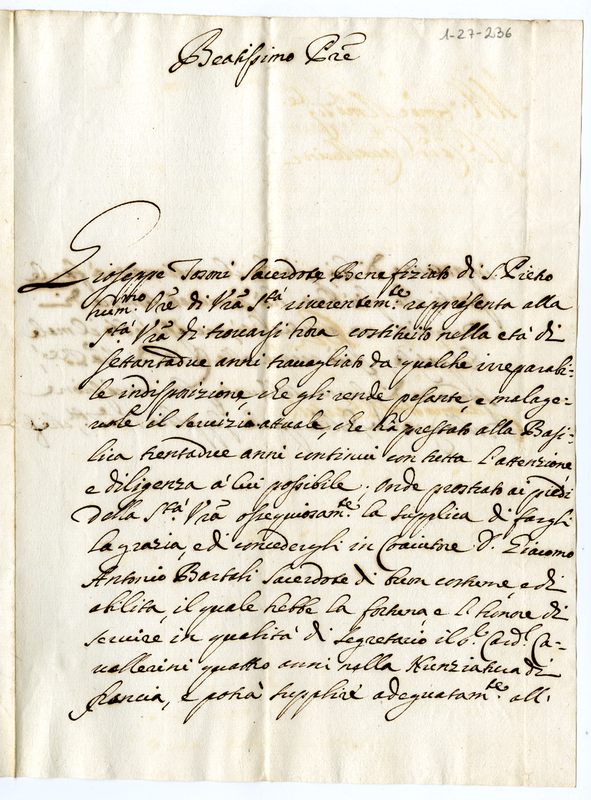 1-27-236
Beatissimo Pre
Gioseppe Tosoni Sacerdote Benefiziato di S. Pietro
hum.mo Ore di Vra S.tà riverentem.te rappresenta alla
S.tà Vra di trovarsi hora costituito nella età di
settantadue anni travagliato da qualche irreparabi-
le indisposizione, che gli rende pesante, e malage-
vole il servizio attuale, che ha prestato alla Basi-
lica trentadue anni continui con tutta l'attenzione
e diligenza à lui possibile; onde prostrato ai piedi
della S.tà Vra ossequiosam.te la supplica di fargli
la grazia, ed concedergli in Coaiutore D. Giacomo
Antonio Bartoli Sacerdote di buon costume, e di
abilità, il quale hebbe la fortuna, e l'honore di
servire in qualità di segretario il S.r Card. Ca-
vallerini quattro anni nella Nunziatura di
francia, e potrà supplire adeguatam.te all'